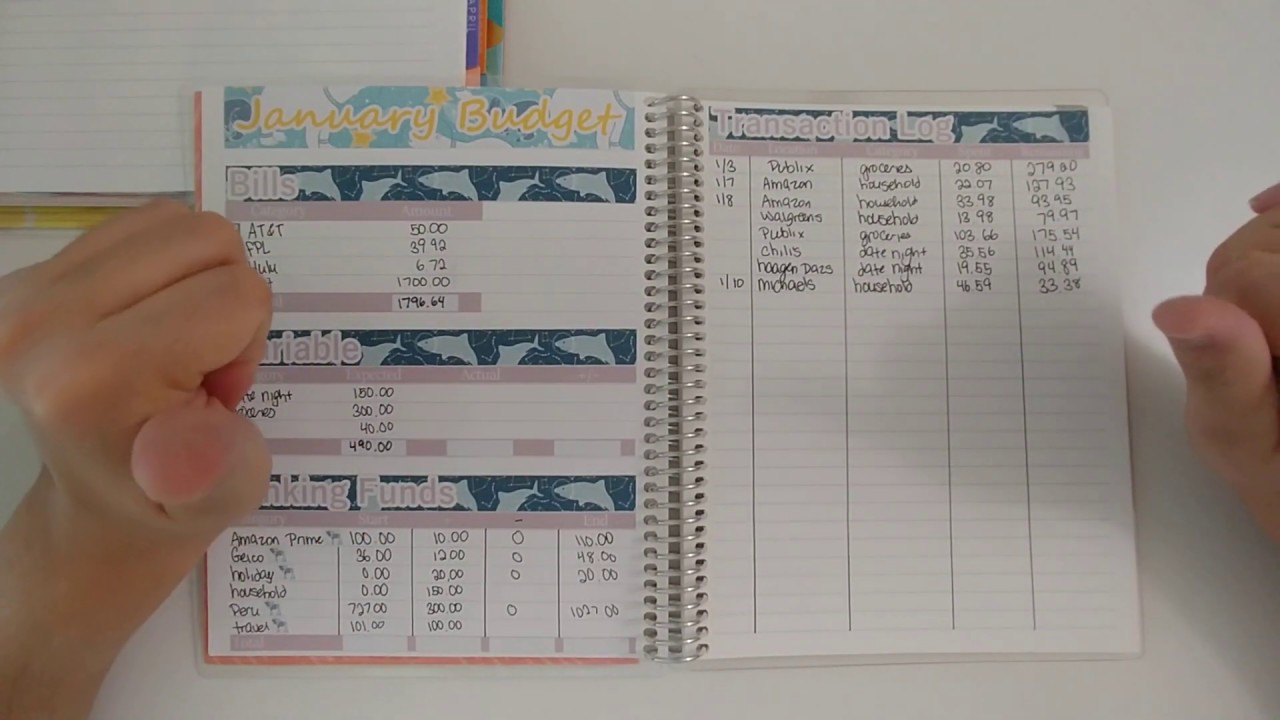 APRIL
January Budget
Bills
Category Amount
AT&T 50.00
FPL 39.92
Hulu 6.72
1700.00
1796.64
Variable
Expected Actual +/-
date night 150.00
groceries 300.00
40.00
490.00
Sinking Funds
Category Start - End
Amazon Prime 100.00 10.00 0 110.00
Geico 36.00 12.00 0 48.00
holiday 0.00 20.00 0 20.00
household 0.00 150.00
Peru 727.00 300.00 0 1027.00
travel 101.00 100.00
Total
Transaction Log
Date Location Category
1/3 Publix groceries 20.80 279.20
1/7 Amazon household 22.07 127.93
1/8 Amazon household 33.98 93.95
Walgreens household 13.98 79.97
Publix groceries 103.66 175.54
chilis date night 35.56 114.44
haagen Dazs date night 19.55 94.89
1/10 michaels household 46.59 33.38